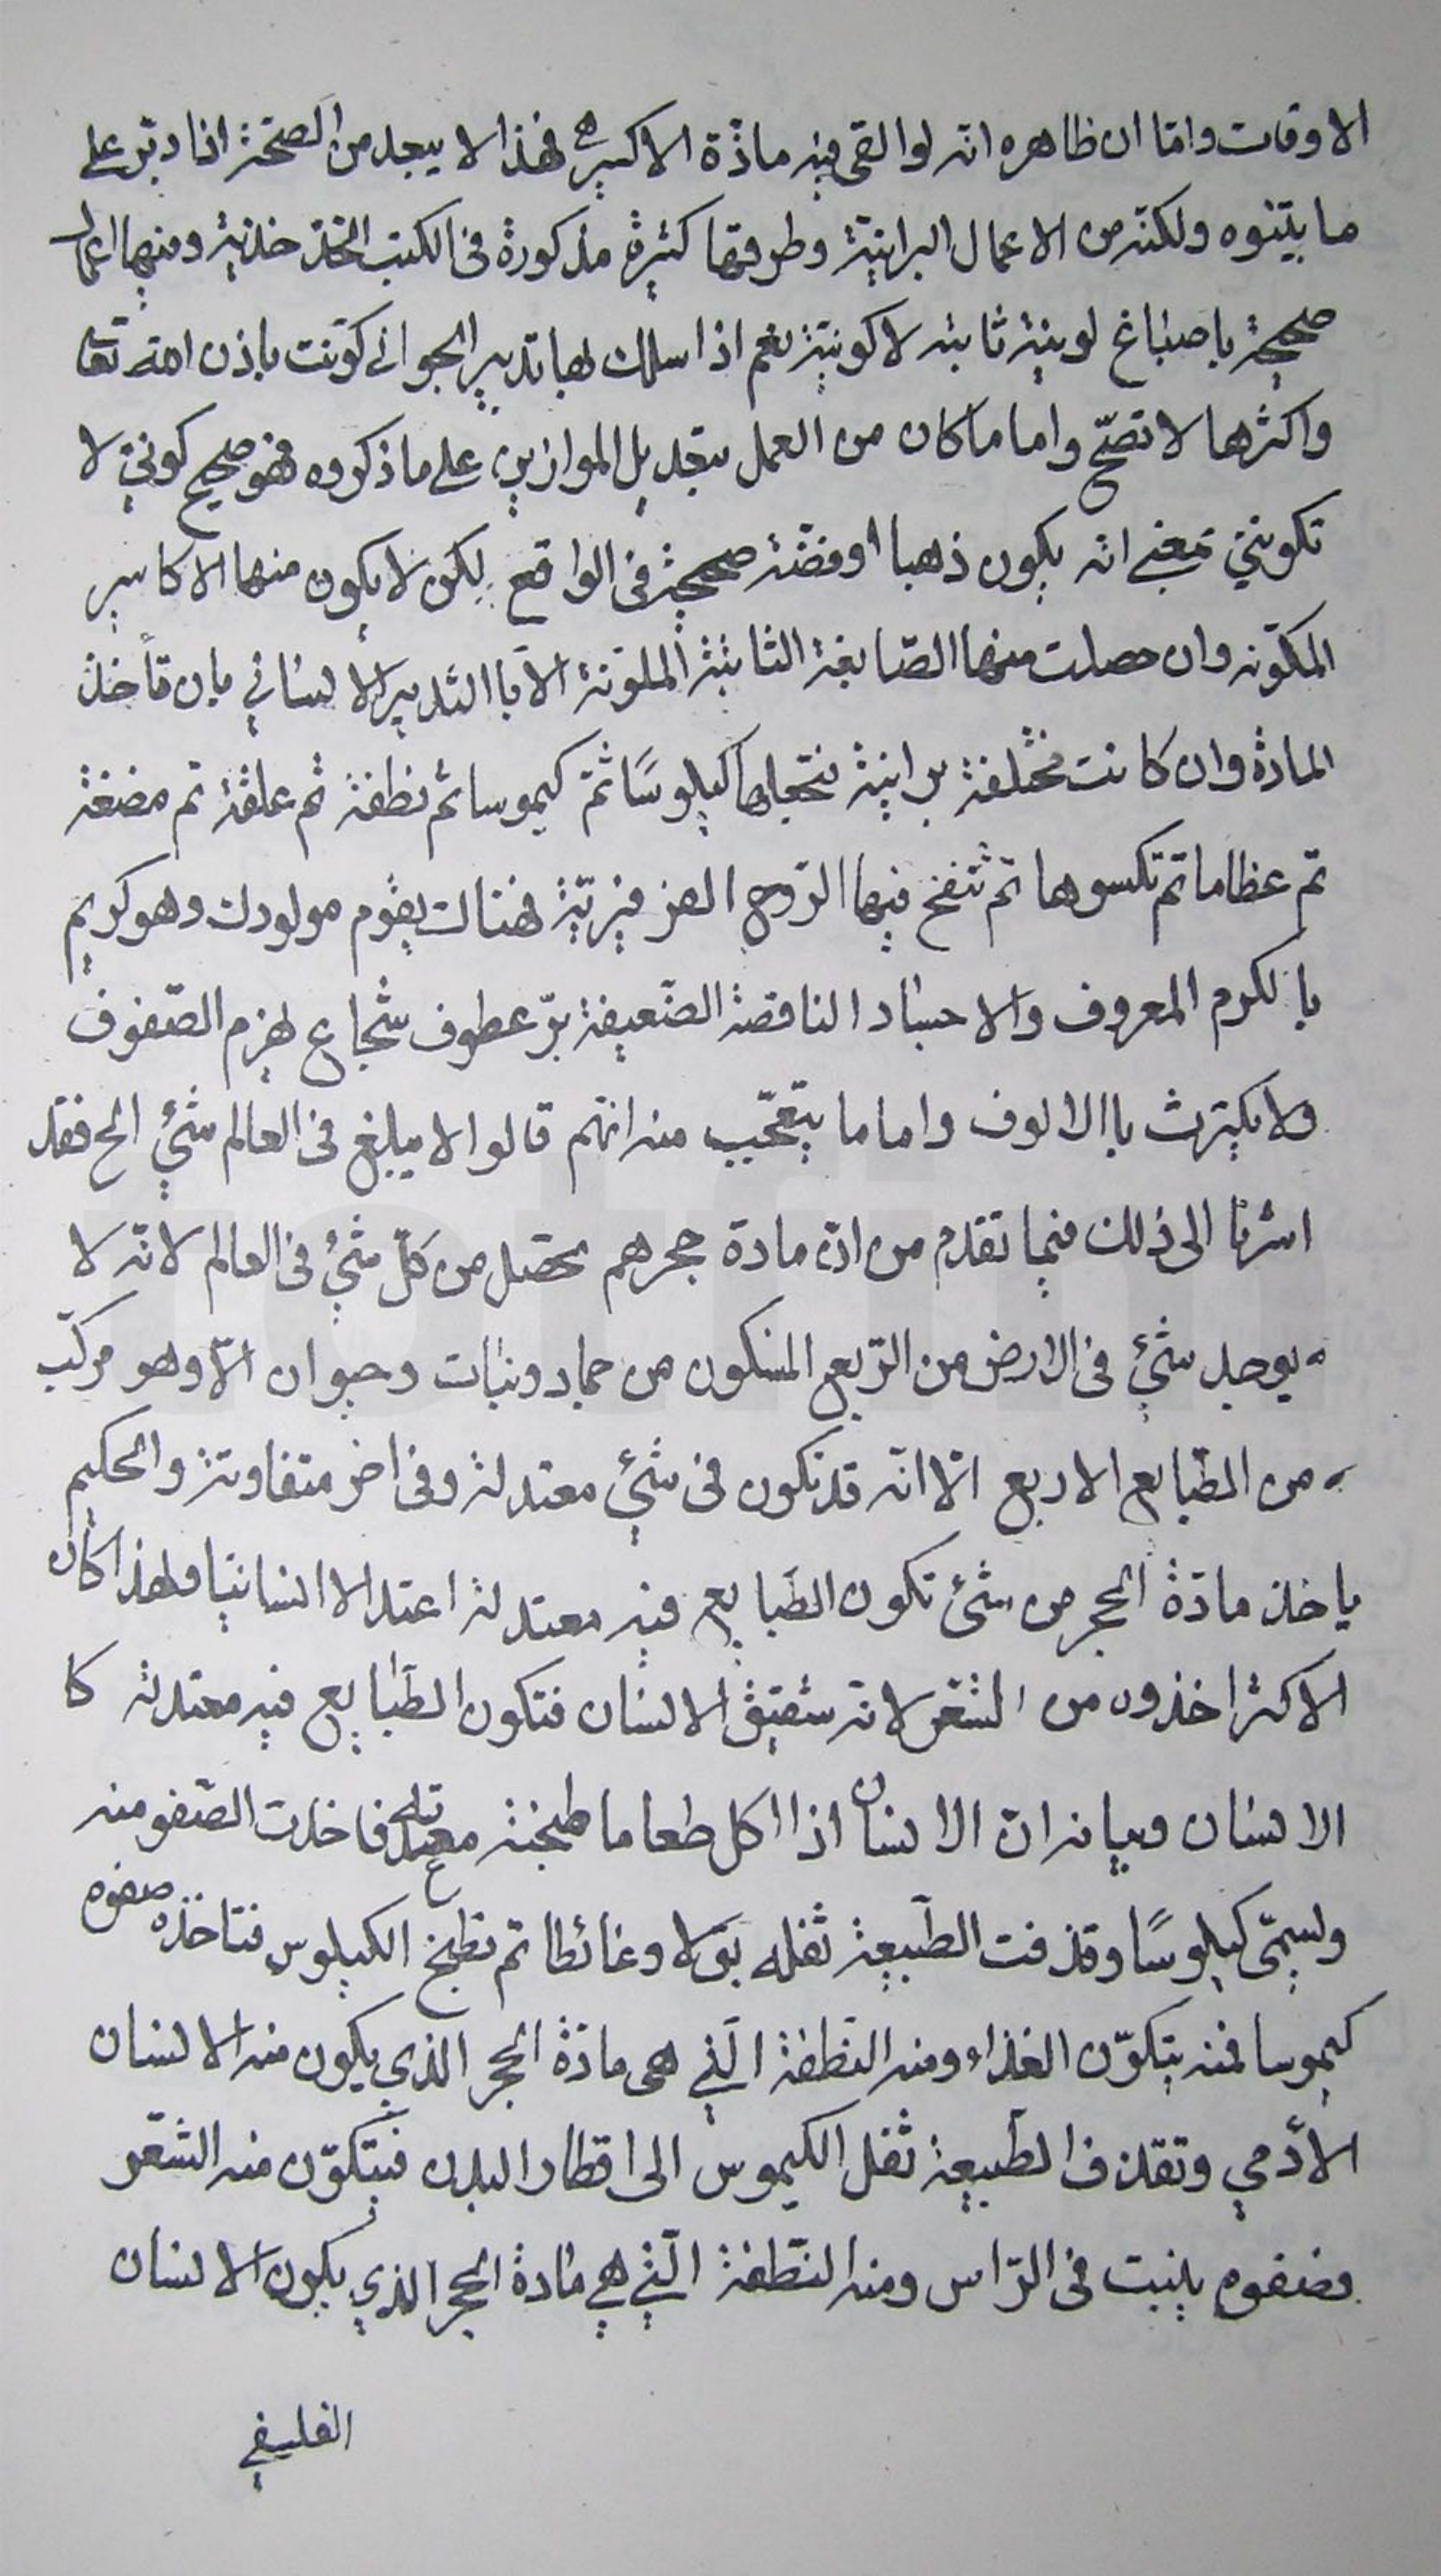 الاوقات واما ان ظاهره انه لو القى فيه مادّة الاكسير فهذا لا يبعد من الصحّة اذا دبّر على
ما بيّنوه ولكنّه من الاعمال البرانية وطرقها كثيرة مذكورة فى الكتب ومنها اعمال
صحيحة باصباغ لونية ثابته لا كونيّة نعم اذا سلك بها تدبير الجوانى كوّنت باذن الله تعا
واكثرها لا تصحّ واما ما كان من العمل بتعديل الموازين على ما ذكروه فهو صحيح كونيّ لا
تكوينيّ بمعنى انه يكون ذهبا او فضّة صحيحة فى الواقع لكن لا يكون منها الاكاسير
المكوّنه وان حصلت منها الصّابغة الثابتة الملوّنة الا باالتدبير الانسانى بان تأخذ
المادة وان كانت مختلفة برانية فتجعلها كيلوسًا ثمّ كيموسا ثم نطفة ثم علقة ثم مضغة
ثم عظاما ثم تكسوها ثم تنفخ فيها الرّوح الغريزيّة فهناك يقوم مولودك وهو كريم
بالكرم المعروف والاجساد الناقصة الضّعيفة برّ عطوف شجاع يهزم الصّفوف
ولا يكترث باالالوف واما ما يتعجّب منه انهم قالوا لا يبلغ فى العالم شئ الخ فقد
اشرنا الى ذلك فيما تقدم من انّ مادة حجرهم تحصل من كلّ شئ فى العالم لانّه لا
يوجد شئ فى الارض من الرّبع المسكون من جماد ونبات وحيوان الّا وهو مركّب
من الطّبايع الاربع الّا انّه قد تكون فى شئ معتدلة وفى اخر متفاوتة والحكيم
ياخذ مادّة الحجر من شئ تكون الطّبايع فيه معتدلة اعتدالا انسانيا ولهذا كان
الاكثر اخذوه من الشّعر لانه شقيق الانسان فتكون الطّبايع فيه معتدلة كا
الانسان وبيانه انّ الانسان اذا اكل طعاما طبخته معدته فاخذت الصّفو منه
ويسمّى كيلوسًا وقذفت الطّبيعة ثفله بولا وغائطا ثم تطبخ الكيلوس فتاخذه صفوه
كيموسا فمنه يتكوّن الغذاء ومنه النّطفة الّتى هى مادّة الحجر الذي يكون منه الانسان
الآدمي وتقذف الطّبيعة ثفل الكيموس الى اقطار البدن فيتكوّن منه الشّعر
وصفوه ينبت فى الرّاس ومنه النّطفة الّتى هى مادة الحجر الذي يكون الانسان
الفلسفى